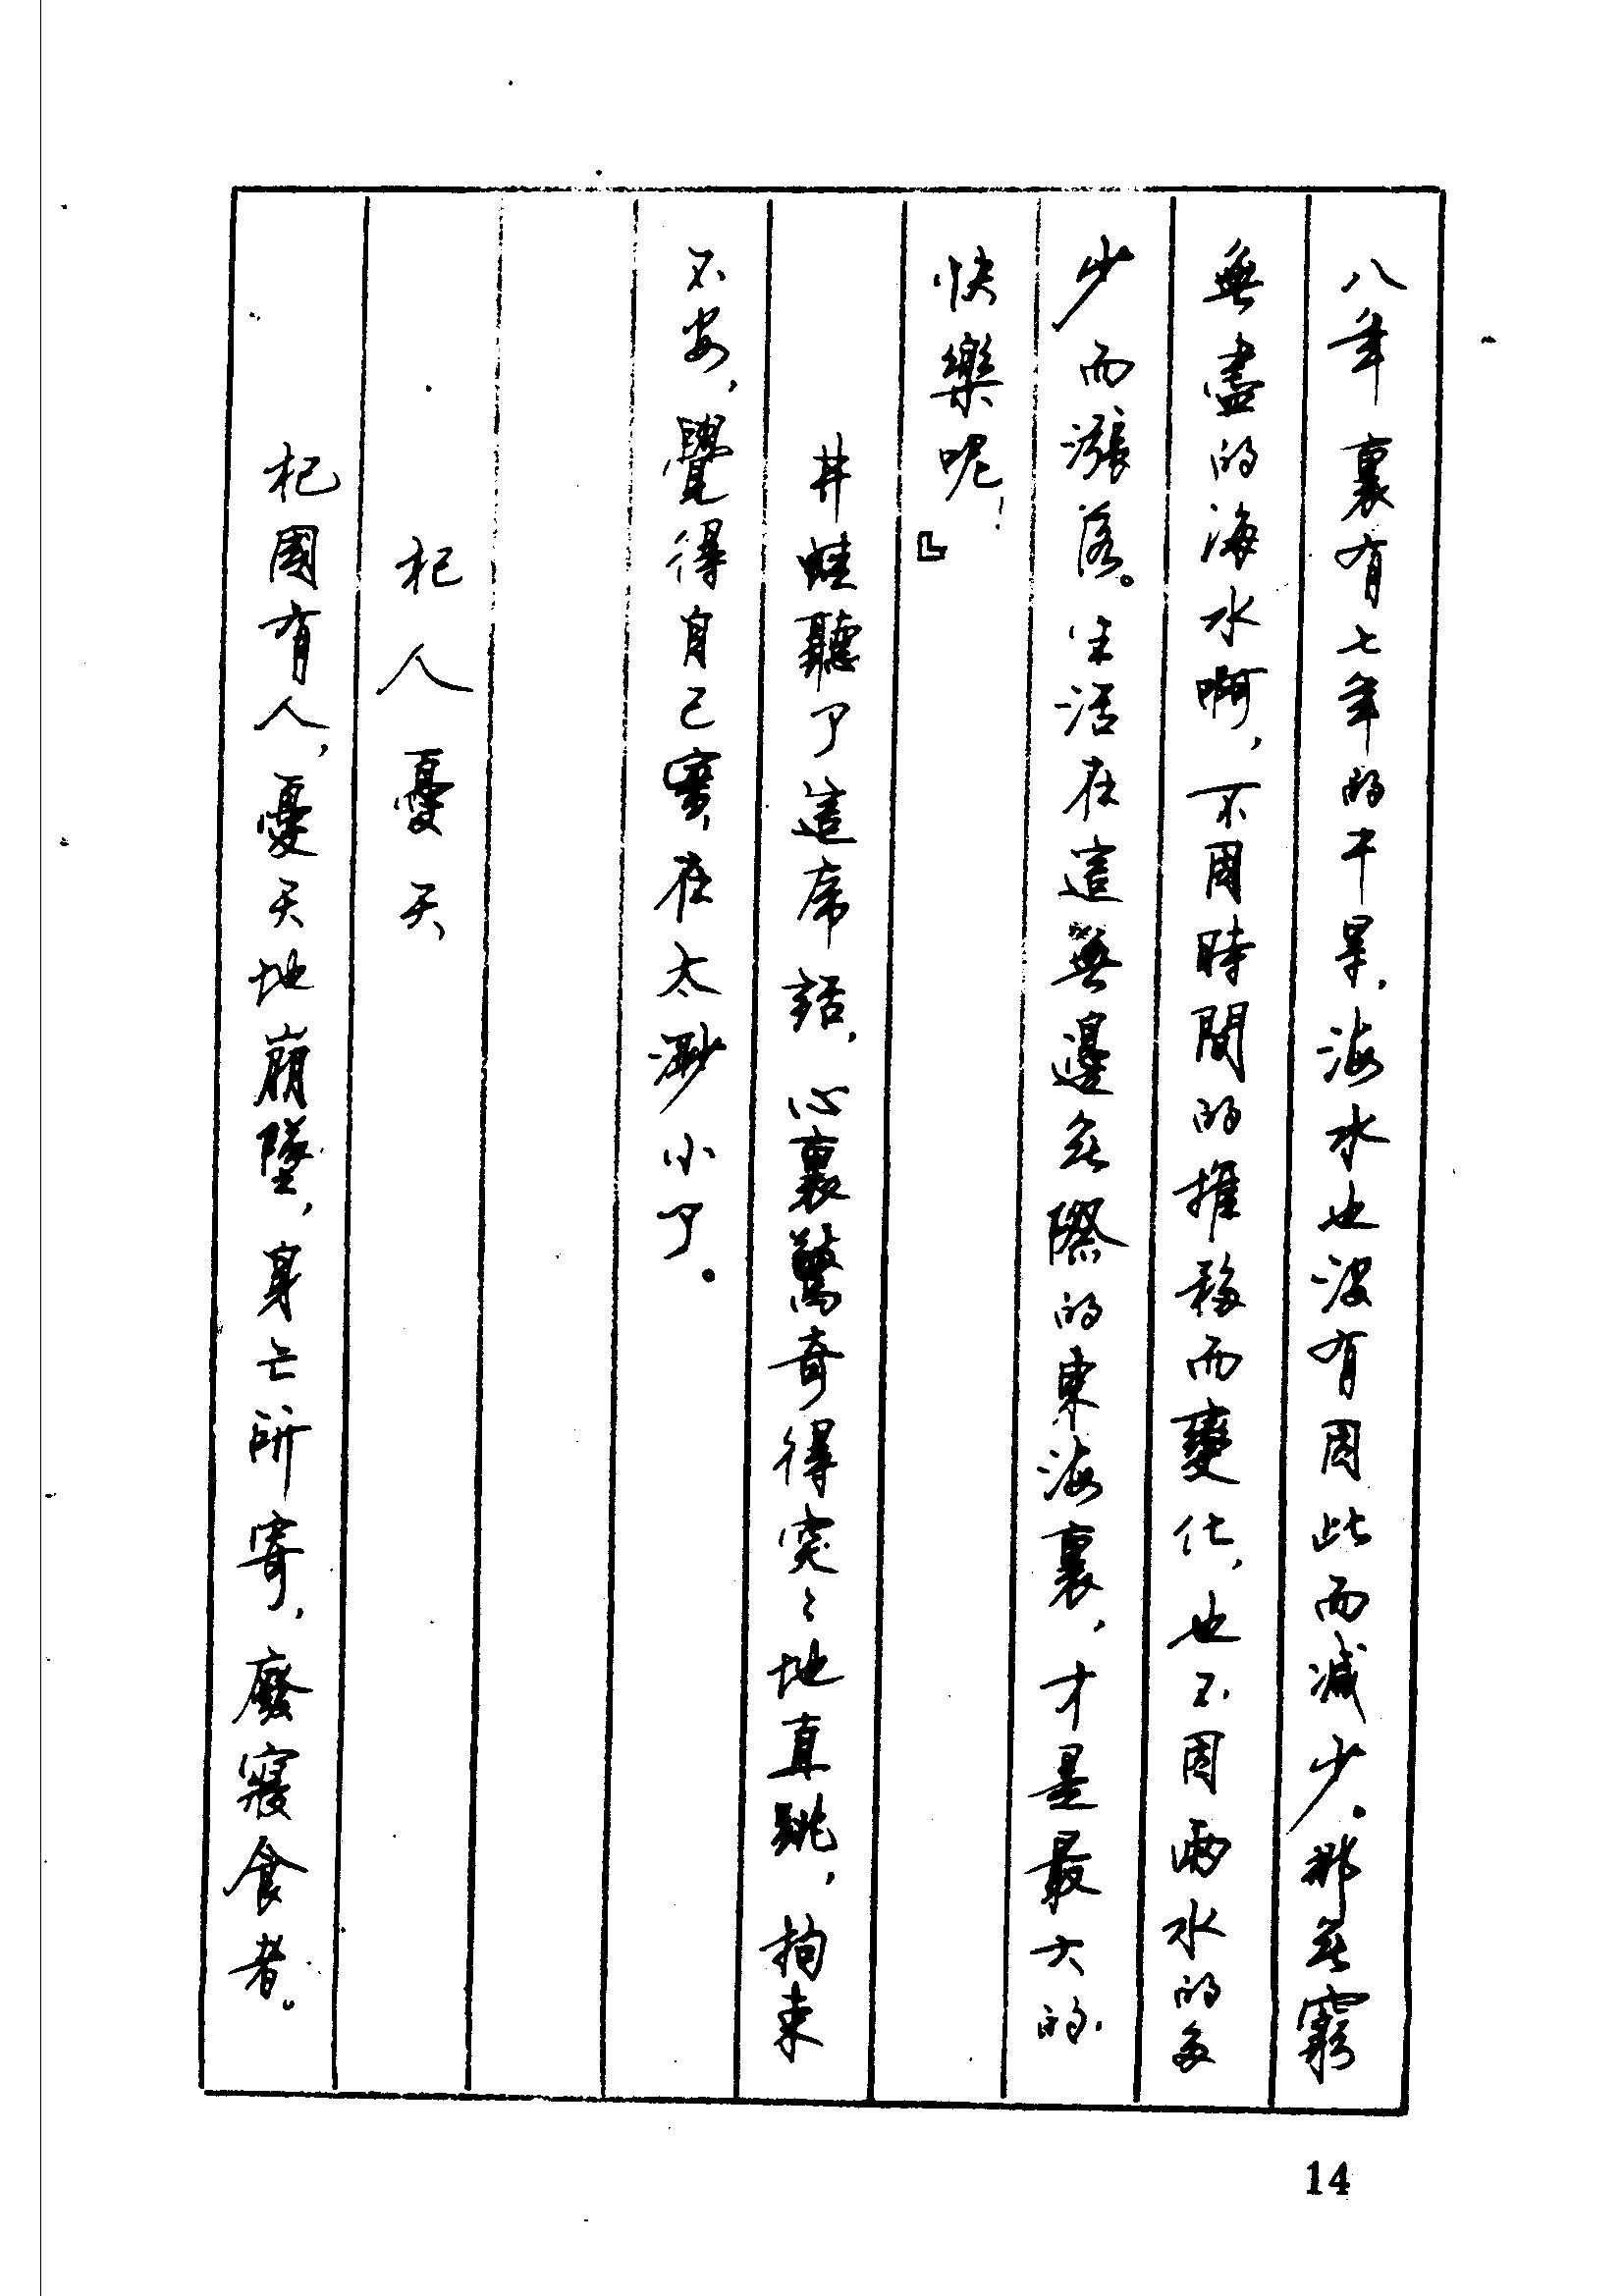 八年裏有七年的干旱，海水也没有因此而减少。那無窮
無盡的海水啊，不因時間的推移而變化，也不因雨水的多
少而漲落。生活在這無邊無際的東海裏，才是最大的
快樂呢！』
井蛙聽了這席話，心裏驚奇得突〻地直跳，拘束
不安，覺得自己實在太渺小了。
杞人憂天
杞國有人，憂天地崩墜，身亡所寄，廢寢食者。
14